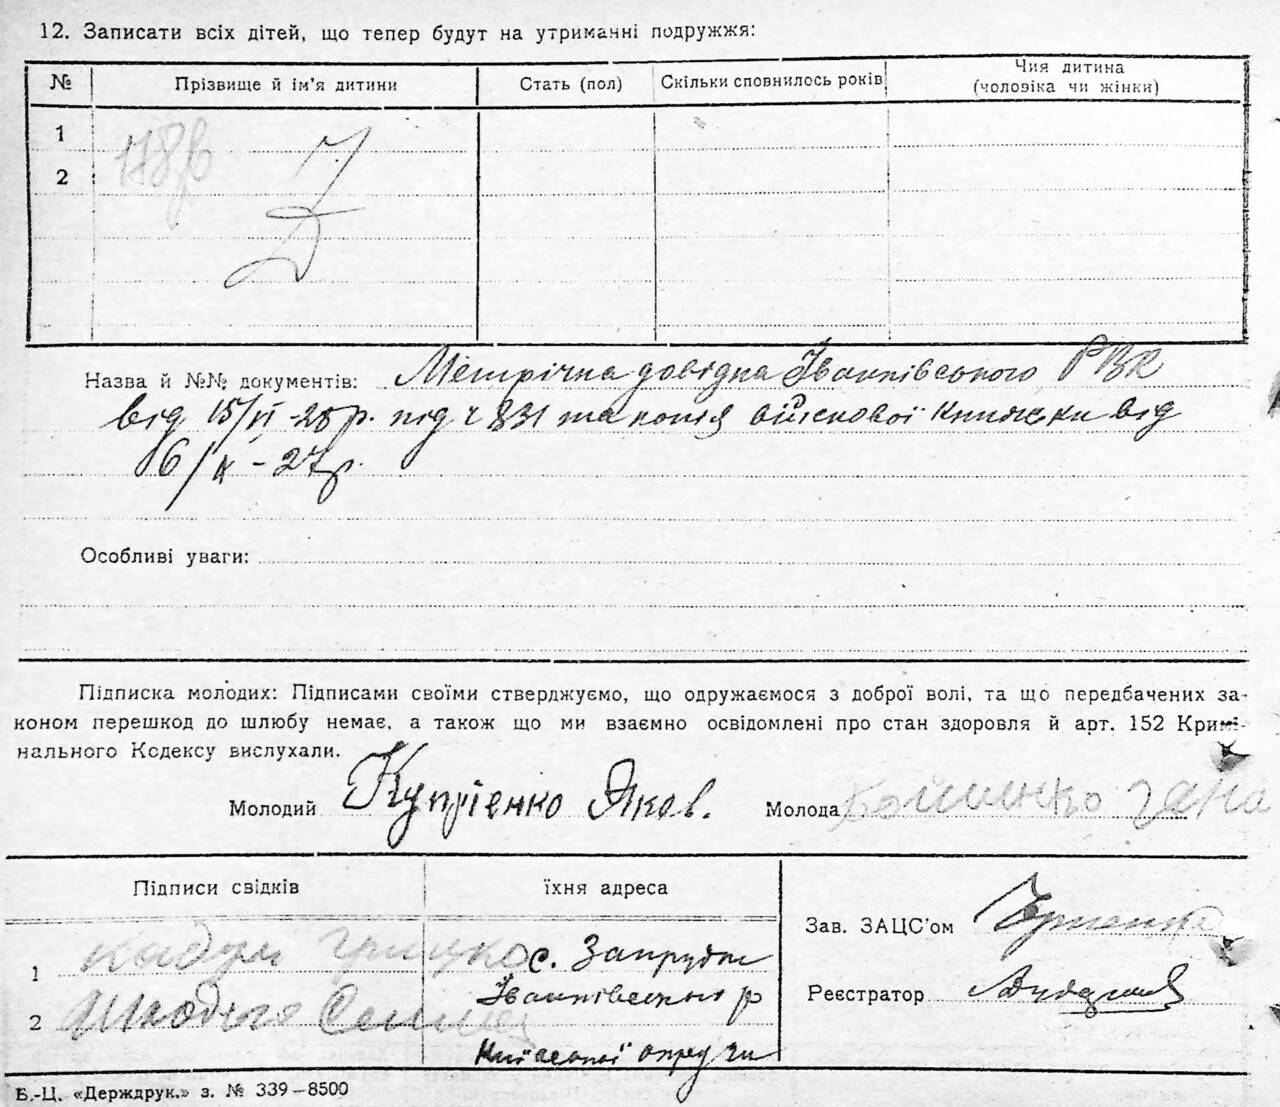 12. Записати всіх дітей, що тепер будут на утриманні подружжя:
№ Прізвище й ім'я дитини Стать (пол) Скільки сповнилось років Чия дитина (чоловіка чи жінки)
1
2
Назва й №№ документів: Метрічна довідка Іванківського РВК
від 15/VI-28 р. під ч 831 та копія військової книжки від
6/X-27р.
Особливі уваги:
Підписка молодих: Підписами своїми стверджуємо, що одружаємося з доброї волі, та що передбачених за-
коном перешкод до шлюбу немає, а також що ми взаємно освідомлені про стан здоровля й арт. 152 Кримі-
нального Кодексу вислухали.
Молодий Купріенко Яков. Молода
Підписи свідків їхня адреса
Зав. ЗАЦС'ом
1 Кадум Грицко с. Запрудки
Іванківського р
Реєстратор
2
Київської округи
Б.-Ц. «Держдрук.» з. № 339—8500